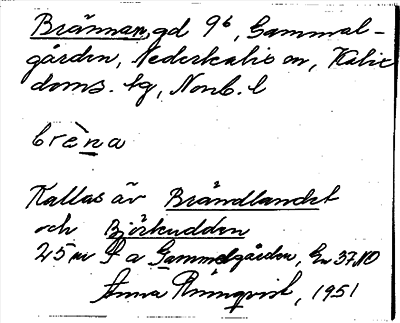 Brännan, gd 9⁶, Gammal-
gården, Nederkalix sn, Kalix
doms. tg, Norrb. l
brèna
Kallas äv Brändlandet
och Björkudden
25 m S a Gammelgården, En 37 NO
Anna Rönnqvist, 1951